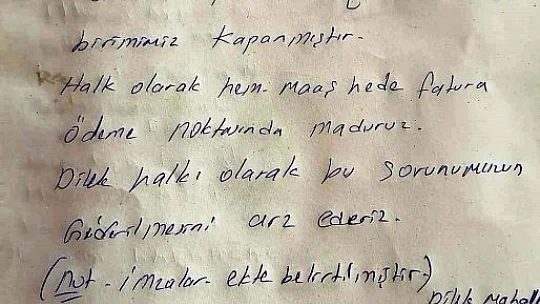 birimimiz kapanmıştır.
Halk olarak hem maaş hede fatura
ödeme noktasında maduruz.
Dilek halkı olarak bu sorunumuzun
Giderilmesini arz ederiz.
(Not - imzalar ekte belirtilmiştir.)
Dilek Mahall